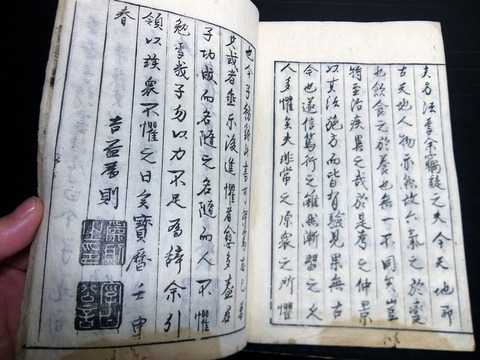 夫方法者余竊疑之夫今天地即
古天地人物亦然故六氣之於變
也飲食之於養也無一不同矣豈
特至治疾異之哉於是考之仲景
以其法施方而皆有驗見果無古
今也遂信篤行之雖然漸習之久
人多懼矣夫非常之原衆之所懼
也今子
其或者垂示後進懼者愈多
子功成而名隨之名隨而人不懼
勉哉子勿以力不足為辭余引
領以 衆不懼之日矣寶曆壬申
春
吉益為則